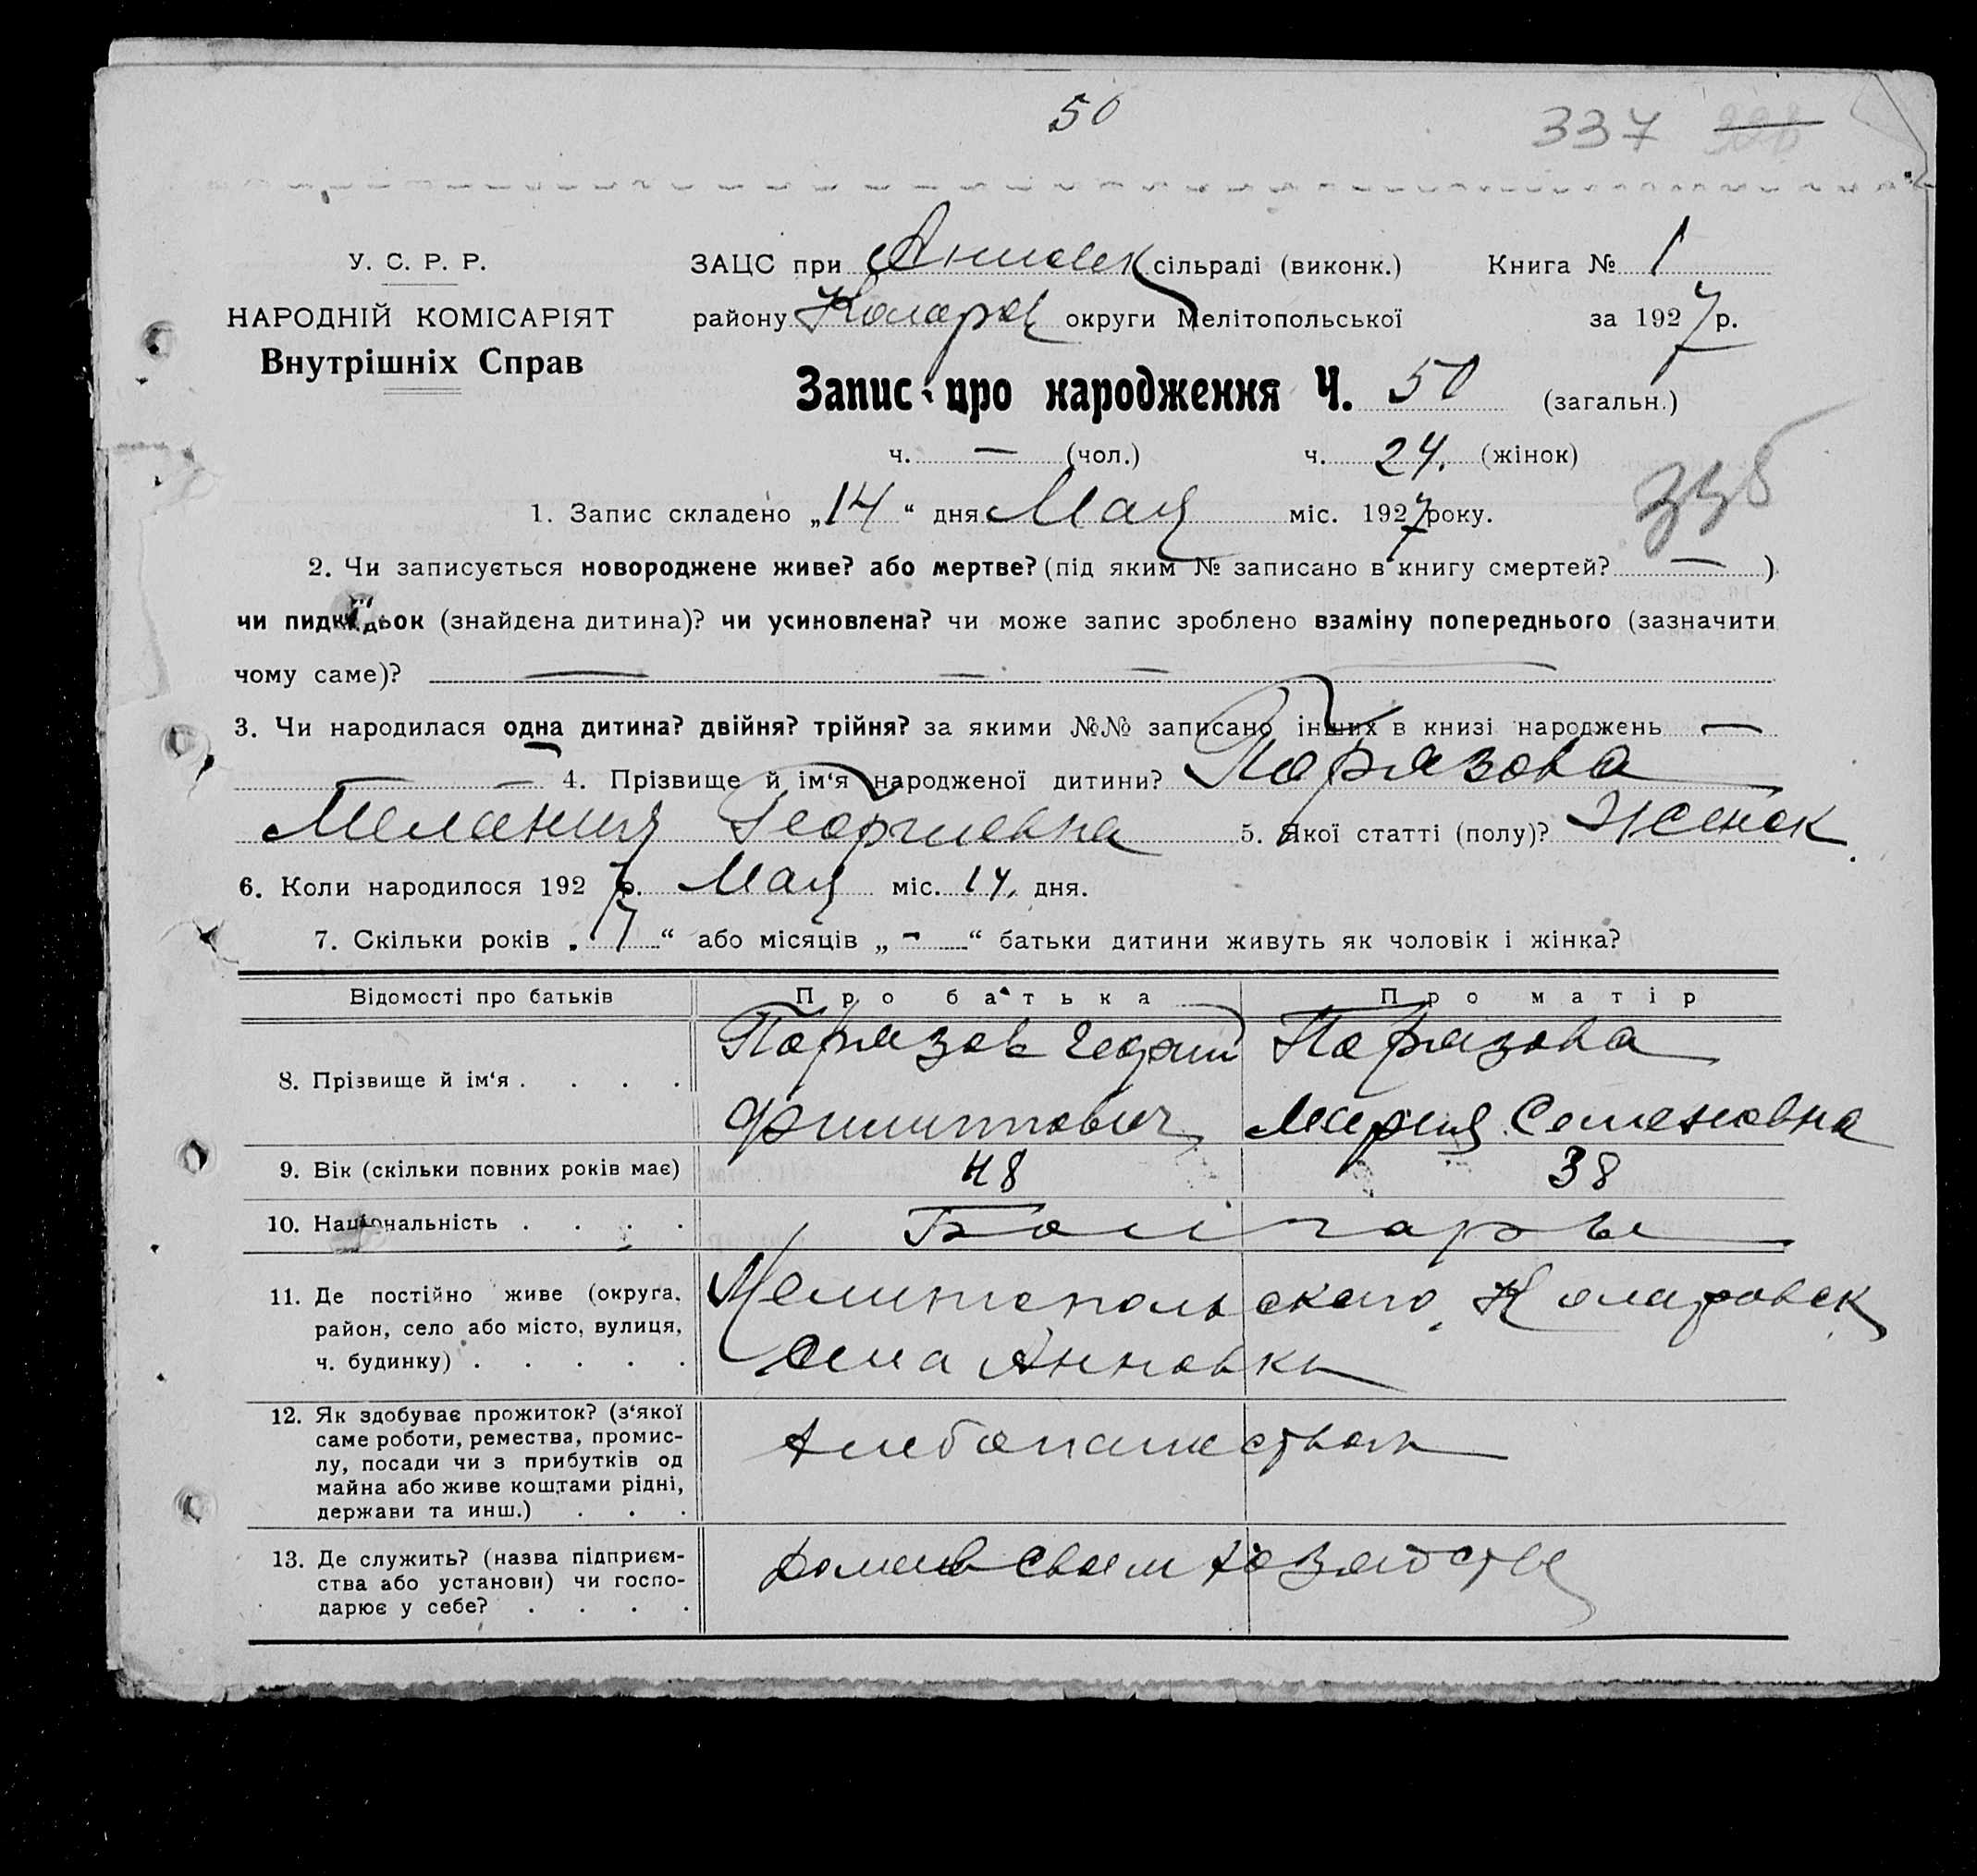 50
337
У. С. Р. Р.
НАРОДНІЙ КОМІСАРІЯТ
Внутрішніх Справ
ЗАЦС при сільраді (виконк.) Книга № 1
району Коларов округи Мелітопольської за 1927 р.
Запис про народження Ч. 50 (загальн.)
ч. — (чол.) ч. 24. (жінок)
1. Запис складено „14“ дня Мая міс. 1927 року.
2. Чи записується новороджене живе? або мертве? (під яким № записано в книгу смертей? — )
чи пидкидьок (знайдена дитина)? чи усиновлена? чи може запис зроблено взаміну попереднього (зазначити
чому саме)? — — —
3. Чи народилася одна дитина? двійня? трійня? за якими №№ записано інших в книзі народжень —
— 4. Прізвище й ім‘я народженої дитини? Парязова
Мелания Георгиевна 5. Якої статті (полу)? Женск.
6. Коли народилося 1927 р. Мая міс. 14. дня.
7. Скільки років „17“ або місяців „-“ батьки дитини живуть як чоловік і жінка?
Відомості про батьків Про батька Про матір
8. Прізвище й ім‘я . . . . Парязов Георгий Парязова
Филиппович Мария Семеновна
9. Вік (скільки повних років має) 48 38
10. Національність . . . . Болгары
11. Де постійно живе (округа, район, село або місто, вулиця, ч. будинку) . . . . . Мелитопольского, Коларовск
села Анновки
12. Як здобуває прожиток? (з‘якої саме роботи, ремества, промислу, посади чи з прибутків од майна або живе коштами рідні, держави та инш.) . . . Хлебопашеством
13. Де служить? (назва підприємства або установи) чи господарює у себе? . . . . дома в своем хозяйстве